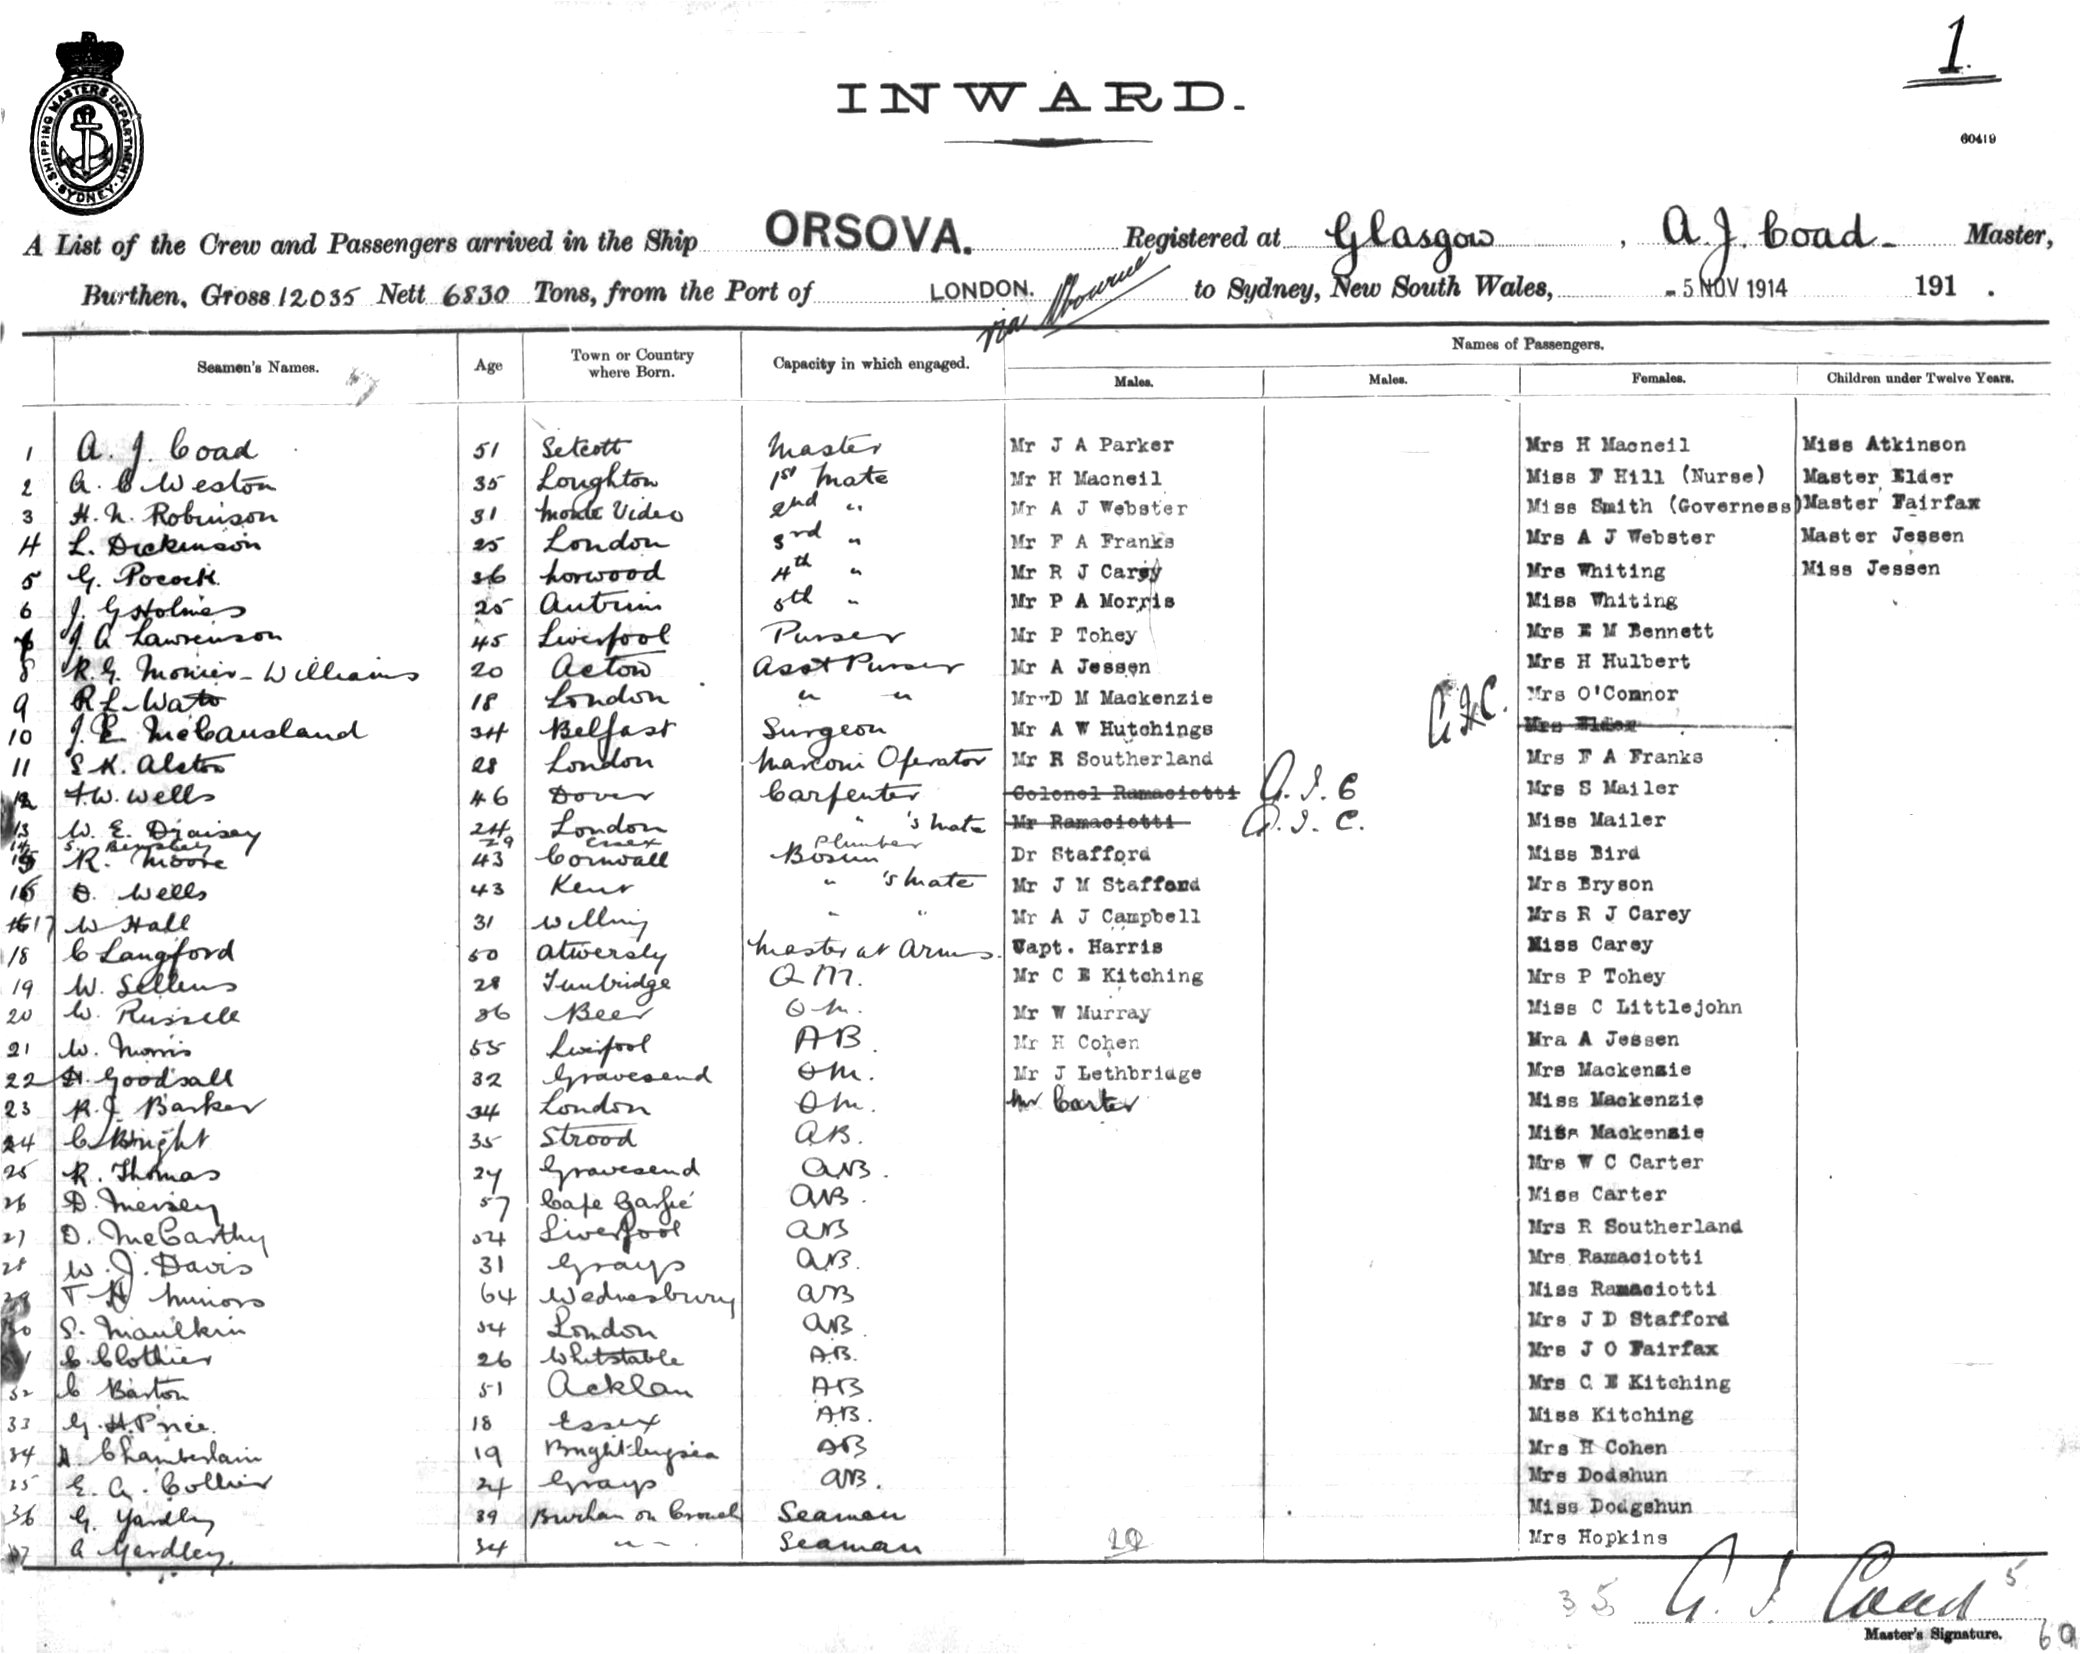 1.
SHIPPING MASTERS DEPARTMENT
SYDNEY
INWARD.
60419
A List of the Crew and Passengers arrived in the Ship ORSOVA. Registered at Glasgow, A. J. Coad Master,
Burthen, Gross 12035 Nett 6830 Tons, from the Port of LONDON. via to Sydney, New South Wales, - 5 NOV 1914 191 .
Seamen's Names. Age Town or Country where Born. Capacity in which engaged. Names of Passengers.
Males. Males. Females. Children under Twelve Years.
1 A. J. Coad 51 Setcott Master Mr J A Parker Mrs H Macneil Miss Atkinson
2 A. C Weston 35 Loughton 1st Mate Mr H Macneil Miss F Hill (Nurse) Master Elder
3 H. N. Robinson 31 Monte Video 2nd " Mr A J Webster Miss Smith (Governess) Master Fairfax
4 L. Dickinson 25 London 3rd " Mr F A Franks Mrs A J Webster Master Jessen
5 G. Pocock. 36 Norwood 4th " Mr R J Carey Mrs Whiting Miss Jessen
6 J. G Holmes 25 Antrim 5th " Mr P A Morris Miss Whiting
7 J. A Lawrenson 45 Liverpool Purser Mr P Tohey Mrs E M Bennett
8 R. G. Monier-Williams 20 Acton Asst Purser Mr A Jessen Mrs H Hulbert
9 R L Watts 18 London " " Mr D M Mackenzie Mrs O'Connor
10 J. E McCausland 34 Belfast Surgeon Mr A W Hutchings A.J.C. Mrs Elder
11 S K. Alston 28 London Marconi Operator Mr R Southerland Mrs F A Franks
12 F. W. Wells 46 Dover Carpenter Colonel Ramaciotti A.J.C Mrs S Mailer
13 W. E. Draisey 24 London " 's Mate Mr Ramaciotti A.J.C. Miss Mailer
14 S. 29 Essex Plumber
15 R. Moore 43 Cornwall Bosun Dr Stafford Miss Bird
16 O. Wells 43 Kent " 's Mate Mr J M Stafford Mrs Bryson
17 W Hall 31 " " Mr A J Campbell Mrs R J Carey
18 C Langford 50 Master at Arms. Capt. Harris Miss Carey
19 W. Sellens 28 Tunbridge Q M. Mr C E Kitching Mrs P Tohey
20 W. Russell 36 Beer Q M. Mr W Murray Miss C Littlejohn
21 W. Morris 55 Liverpool A B. Mr H Cohen Mra A Jessen
22 H. Goodsall 32 Gravesend Q M. Mr J Lethbridge Mrs Mackenzie
23 R. J Barker 34 London Q M. Mr Carter Miss Mackenzie
24 C. Wright 35 Strood A B. Miss Mackenzie
25 R. Thomas 27 Gravesend A B. Mrs W C Carter
26 D. Mersey 57 A B. Miss Carter
27 D. McCarthy 54 Liverpool A B Mrs R Southerland
28 W. J. Davis 31 Grays A B. Mrs Ramaciotti
29 T H Minors 64 Wednesbury A B Miss Ramaciotti
30 S. Maulkin 54 London A B. Mrs J D Stafford
31 C. Clothier 26 Whitstable A.B. Mrs J O Fairfax
32 C Barton 51 Acklan A B Mrs C E Kitching
33 G. H. Price. 18 Essex A.B. Miss Kitching
34 A. Chamberlain 19 Brightlingsea A B Mrs H Cohen
35 E. A. Collier 24 Grays A B. Mrs Dodshun
36 G. Yardley 39 Burhan on Crouch Seaman Miss Dodgshun
37 A Yardley. 34 " " Seaman Mrs Hopkins
35 A. J. Coad 5
Master's Signature.